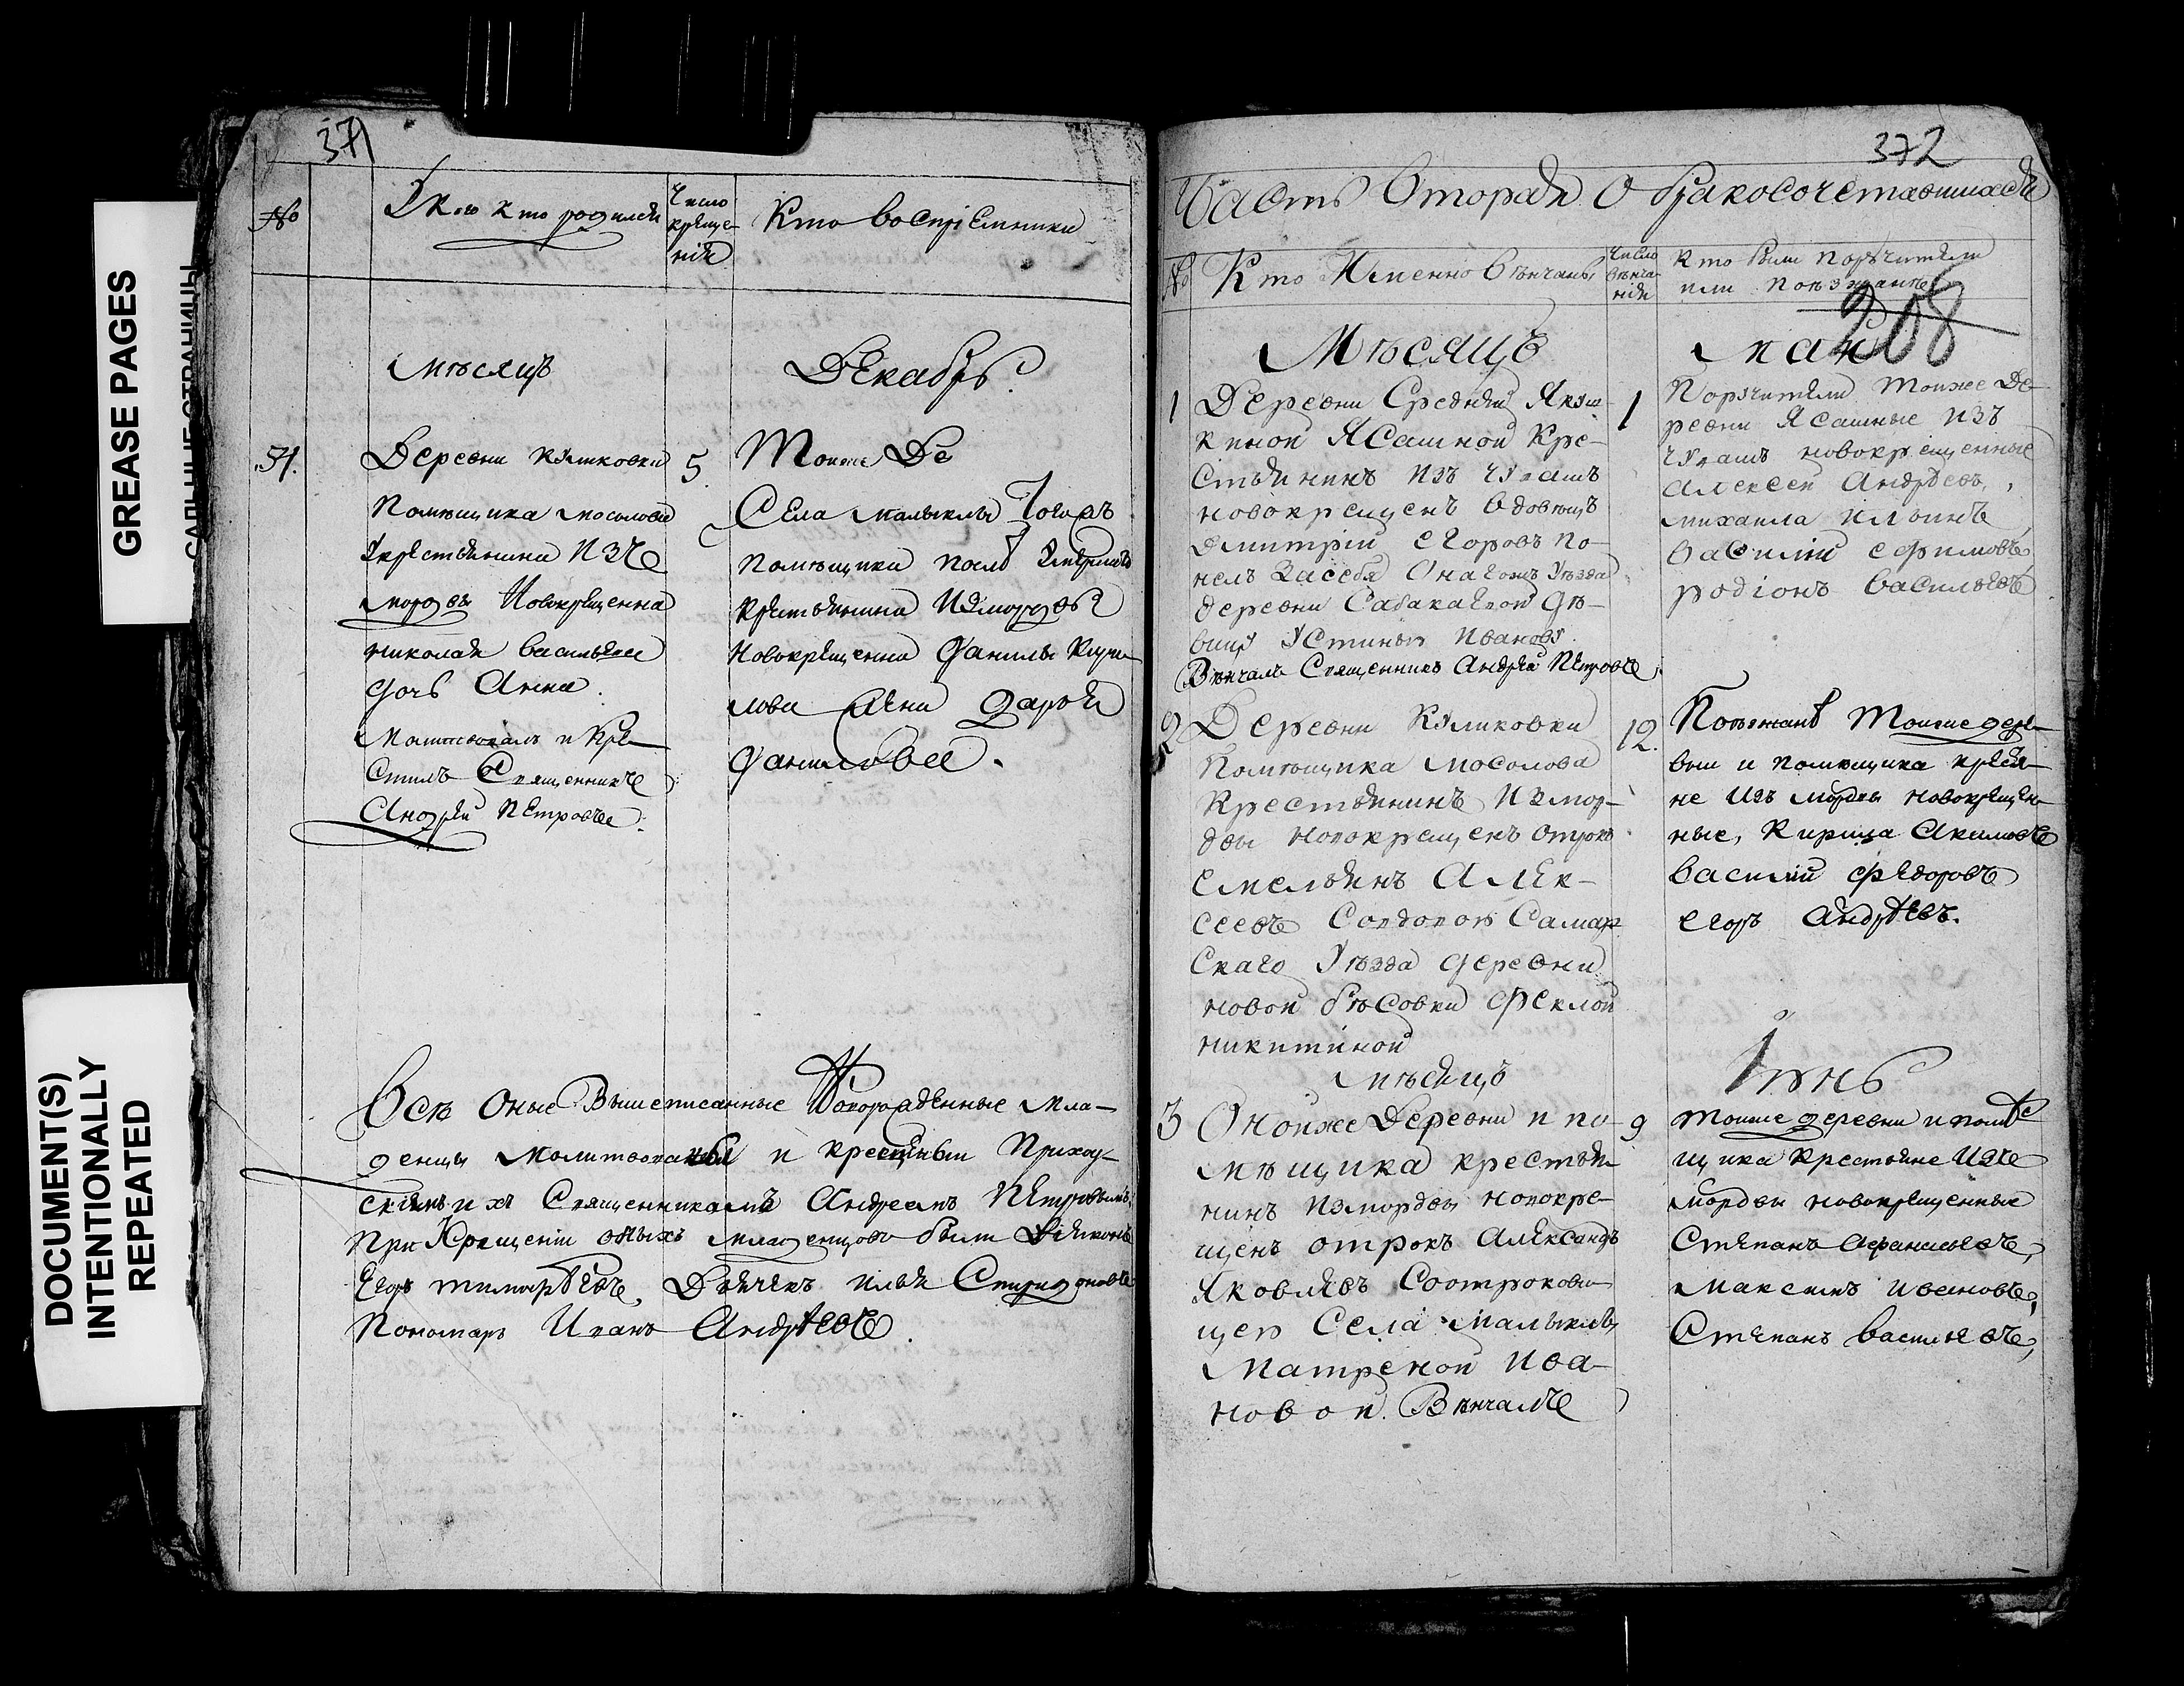 GREASE PAGES
САЛЬНЫЕ СТРАНИЦЫ
DOCUMENT(S)
INTENTIONALLY
REPEATED
371
№
У кого кто родился
Число
креще-
нія
Кто воспріемники
Мѣсяцъ
Декабрь
51.
Деревни Куликовки
помѣщика Мосолова
у крестьянина изъ
мордвы новокрещена
Николая Васильева
дочь Анна.
Молитвовалъ и кре-
стилъ священникъ
Андрей Петровъ.
5.
Тоиже де
Села Малыклы тогожъ
помѣщика
крестьянина из мордвы
новокрещена Данилы Кири-
лова жена Дарья
Данилова.
Всѣ оные вышеписанные новорожденные мла-
денцы молитвованы и крещены приход-
скимъ ихъ священникомъ Андреемъ Петровымъ.
При крещеніи оныхъ младенцовъ были діаконъ
Егоръ Тимофѣевъ, дьячекъ Илья Спиридоновъ
пономарь Иванъ Андрѣевъ.
372
Часть вторая о бракосочетавшихся
№
Кто именно вѣнчаны
Число
вѣнча-
нія
Кто были поручители
или поѣзжане
208
Мѣсяцъ
Маи
1
Деревни Средней Якуш-
киной ясашной кре-
стьянинъ изъ чувашъ
новокрещенъ вдовецъ
Дмитрій Егоровъ по-
нелъ за себя онагожъ уѣзда
деревни Сабакаевой дѣ-
вицу Устинью Иванову.
Вѣнчалъ священникъ Андрей Петровъ.
1
Поручители тоиже де-
ревни ясашные изъ
чувашъ новокрещенные
Алексей Андрѣевъ,
Михаила Ильинъ
Василій Ефимовъ
Родіонъ Васильевъ
2
Деревни Куликовки
помѣщика Мосолова
крестьянинъ из мор-
двы новокрещенъ отрокъ
Емельянъ Алек-
сеевъ со вдовой Самар
скаго уѣзда деревни
Новой Бѣсовки Феклой
Никитиной
12.
Поѣзжане тоиже дере-
вни и помѣщика крестья-
не изъ мордвы новокрещен-
ные, Кирила Акимовъ
Василій Федоровъ
Егоръ Андрѣевъ.
мѣсяцъ
Іюнь
3
Оноиже деревни и по-
мѣщика крестья-
нинъ из мордвы новокре-
щенъ отрокъ Александръ
Яковлевъ со отрокови-
цею села Малыклы
Матреной Ива-
новой. Вѣнчалъ
9
Тоиже деревни и помѣ
щика крестьяне изъ
мордвы новокрещенные
Степанъ Афанасьевъ,
Максимъ Ивановъ,
Степанъ Васильевъ,